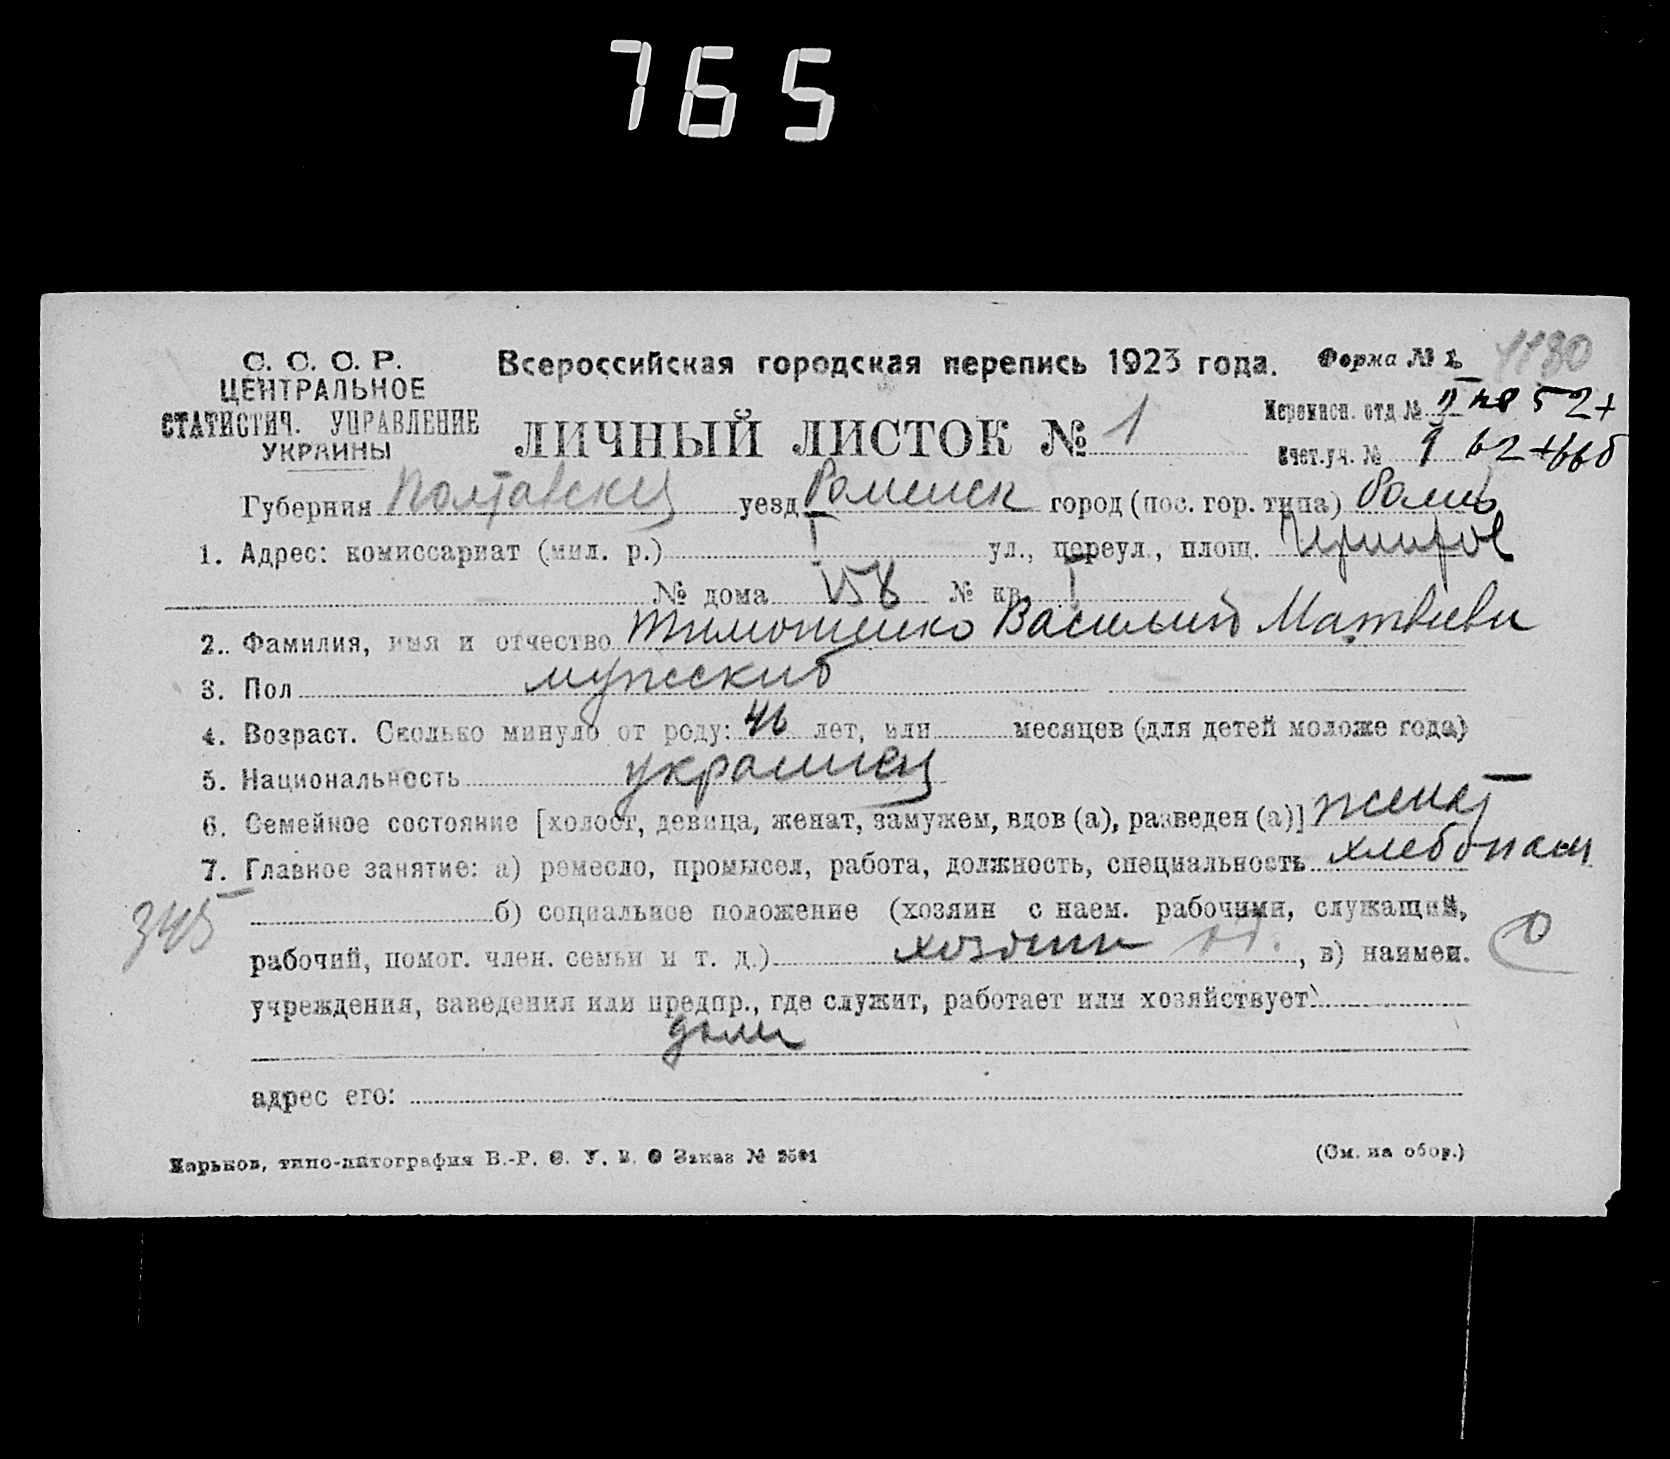 765
С. С. С. Р.
ЦЕНТРАЛЬНОЕ
СТАТИСТИЧ. УПРАВЛЕНИЕ
УКРАИНЫ
Всероссийская городская перепись 1923 года.
Форма № 1
1130
ЛИЧНЫЙ ЛИСТОК № 1
Переписн. отд №
Счет.уч. №
Губерния Полтавский уезд Роменск город (пос. гор. типа) Ромнь
1. Адрес: комиссариат (мил. р.) I ул., переул., площ.
№ дома 158 № кв. I
2. Фамилия, имя и отчество Тимошенко Василий Матвиеви
3. Пол мужский
4. Возраст. Сколько минуло от роду: 46 лет, или месяцев (для детей моложе года)
5. Национальность украинец
6. Семейное состояние [холост, девица, женат, замужем, вдов (а), разведен (а)] женат
7. Главное занятие: а) ремесло, промысел, работа, должность, специальность хлебопаш
345
б) социальное положение (хозяин с наем. рабочими, служащий,
рабочий, помог. член. семьи и т. д.) хозоин , в) наимен.
0
учреждения, заведения или предпр., где служит, работает или хозяйствует
дома
адрес его:
Харьков, типо-литография В.-Р. С. У. В. О Заказ №
(См. на обор.)